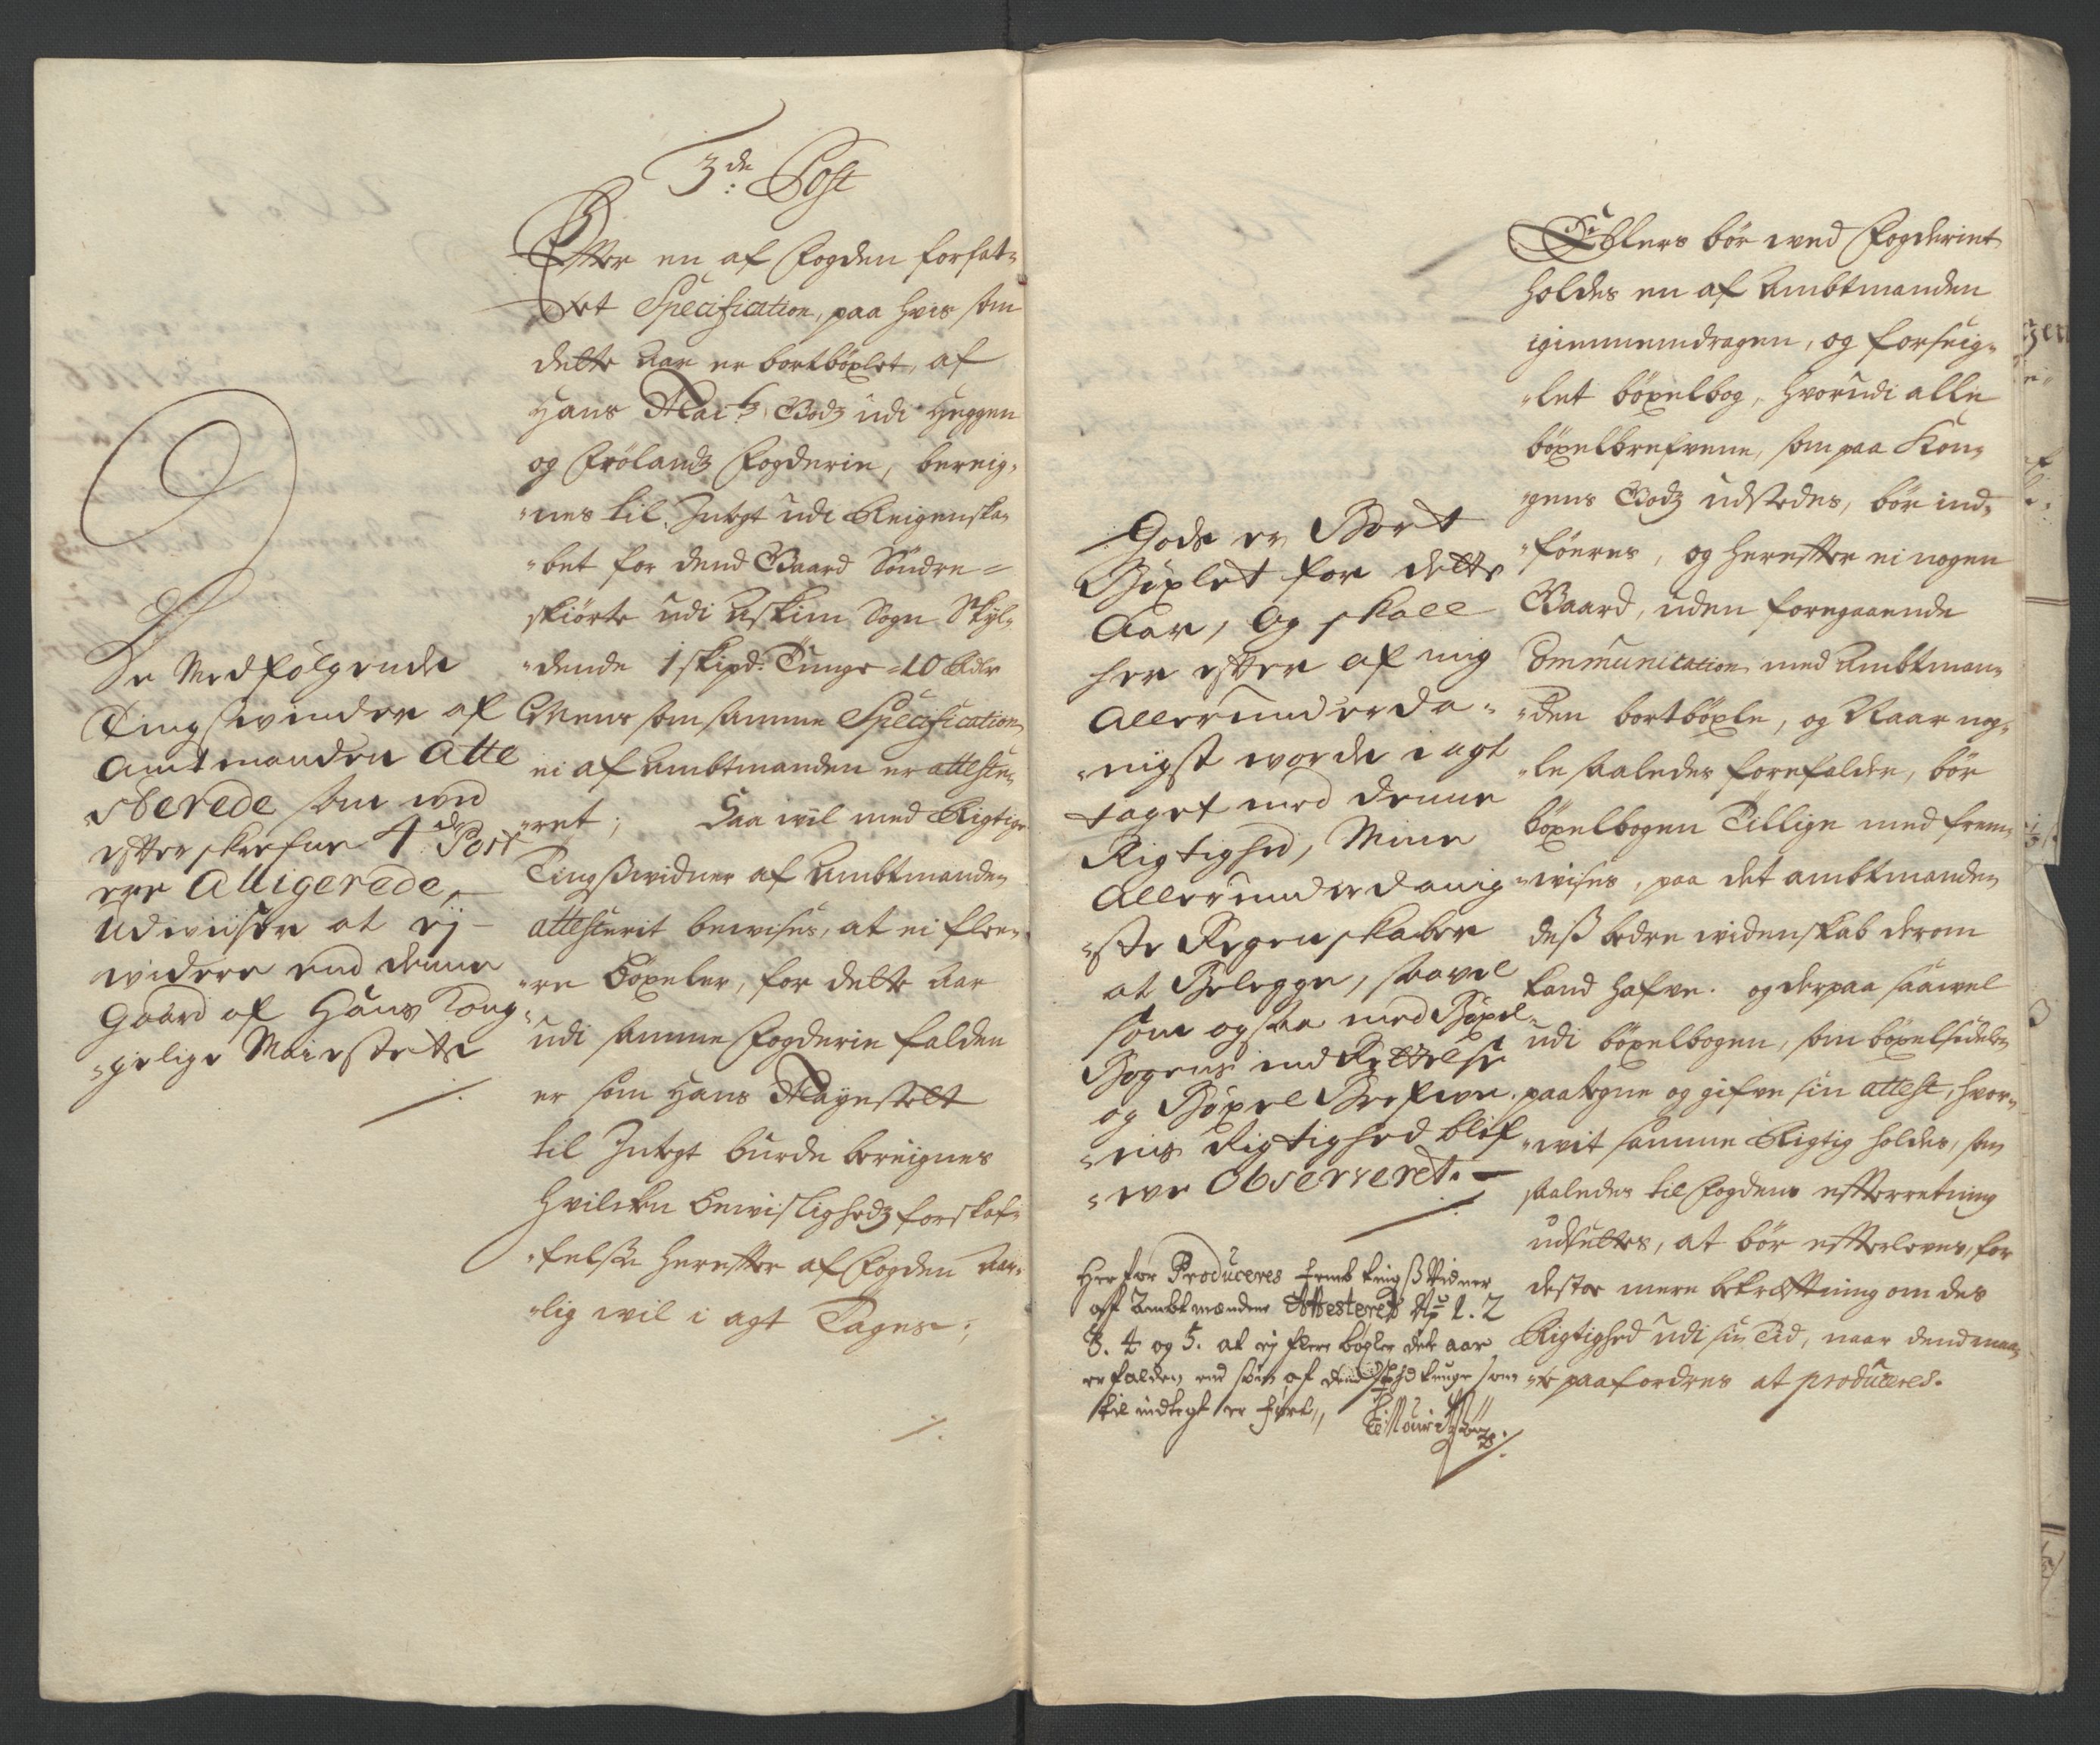 3de: Post
Efter en af Fogden forfat-
tet Specification, paa hvis som
dette Aar er bortböxlet, af
Hans Maitz Godz udi Heggen
og Frölandz Fogderie, bereig-
"nes til Integt udi Reigenska-
"bet for dend Gaard Söndre=
skiörte udi Askim Sogn Skyl-
"dende 1 skipd: Tunge =10 Rdlr
Mens som samme Specification
ei af Ambtmanden er atteste-
"ret; Saa wil med Rigtige
Tingßwidner af Ambtmanden
attesterit bewises, at ei flee-
"re Böxeler, for dette Aar
udi samme Fogderie falden
er som Hans Mayestett
til Integt burde bereignes
hvilcken bewislighedz forskaf-
"felße herefter af Fogden Aar-
"lig wil i agt Tages;
De Medfølgende
Tingswinder af
Amtmanden Atte
sterede som ved
efterskrefne 4de Post
ere Alligerede,
Udwiiser at ej
widere end denne
Gaard af Hans Kong-
"gelige Maiestetts
Gods er Bort
Bøxlet for dette
Aar, Og skall
her efter af mig
Allerunderda-
"nigst worde i agt
taget med denne
Rigtighed, Mine
Allerunderdanig-
"ste Regenskaber
at Belegge, saavel
som ogsaa med Bøxel-
Bogens indRettelse
og Bøxel Brefwe-
"nis Rigtighed blif
"we Observeret.
Her for Produceres femb tingßWidner
af Ambtmanden Attesteret No 1. 2
3. 4 og 5. at ej flere bøxler det aar
er falden end som af dend skpd tunge som
til indtegt er fört,,
Ellers bör wed Fogderiet
holdes en af Ambtmanden
igiemmemdragen, og forseig-
"let böxelbog, hvorudi alle
böxelbrefvene, som paa Kon-
gens Godz udstedes, bör ind-
"föeres, og herefter ei nogen
Gaard, uden foregaaende
Communication med Ambtman-
"den bortböxle, og Naar nog-
"le saaledes forefalder, bör
böxelbogen Tillige med frem-
"wises, paa det ambtmanden
deß bedre widenskab derom
kand hafve. og derpaa saawel
udi böxelbogen, som böxelsedelen
paategne og gifve sin attest, hvor-
"wit samme Rigtig holdes, som
saaledes til Fogdens efterretning
udsettes, at bör efterleves, for
destoe mere bekreftning om des
Rigtighed udi sin Tid, naar dend maa-
"te paafordres at produceres.